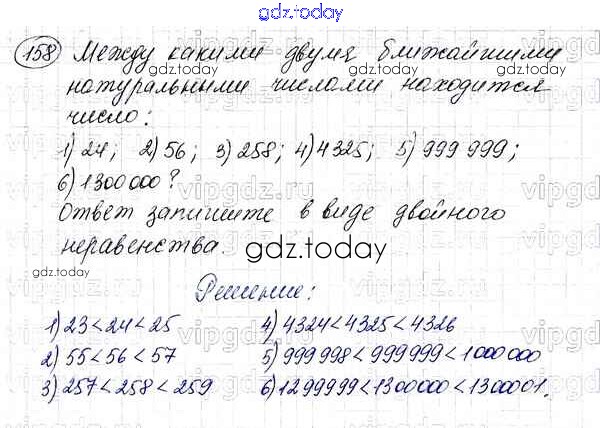 gdz.today
158 Между какими двумя ближайшими
gdz.today gdz.today
натуральными числами находится
число:
1) 24; 2) 56; 3) 258; 4) 4325; 5) 999 999;
vipgdz.ru vipgdz.ru vipgdz
6) 1300 000?
Ответ запишите в виде двойного
неравенства.
gdz.today
gdz.today gdz.today
Решение:
1) 23 < 24 < 25 4) 4324 < 4325 < 4326
2) 55 < 56 < 57 5) 999 998 < 999 999 < 1000 000
3) 257 < 258 < 259 6) 1299999 < 1300000 < 1300001.
gdz.today gdz.today